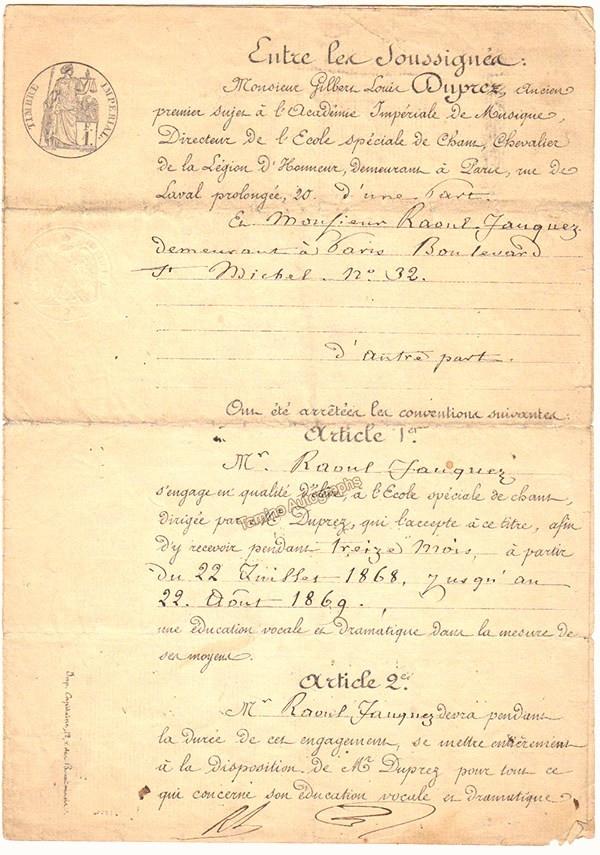 TIMBRE IMPERIAL
F. 1.
Entre les Soussignés :
Monsieur Gilbert Louis Duprez, Ancien
premier sujet à l'Académie Impériale de Musique,
Directeur de l'Ecole spéciale de Chant, Chevalier
de la Légion d'Honneur, demeurant à Paris, rue de
Laval prolongée, 20. d'une Part.
Et Monsieur Raoul Jauquez
demeurant à Paris Boulevard
St Michel. No 32.
d'autre part.
Ont été arrêtées les conventions suivantes :
Article 1er.
Mr. Raoul Jauquez
s'engage en qualité d'élève, à l'Ecole spéciale de chant,
dirigée par Mr. Duprez, qui l'accepte à ce titre, afin
d'y recevoir pendant treize mois, à partir
du 22 Juillet 1868, jusqu'au
22. Août 1869.
une éducation vocale et dramatique dans la mesure de
ses moyens.
Article 2e.
Mr Raoul Jauquez devra pendant
la durée de cet engagement, se mettre entièrement
à la disposition de Mr Duprez pour tout ce
qui concerne son éducation vocale et dramatique
Tamino Autographs